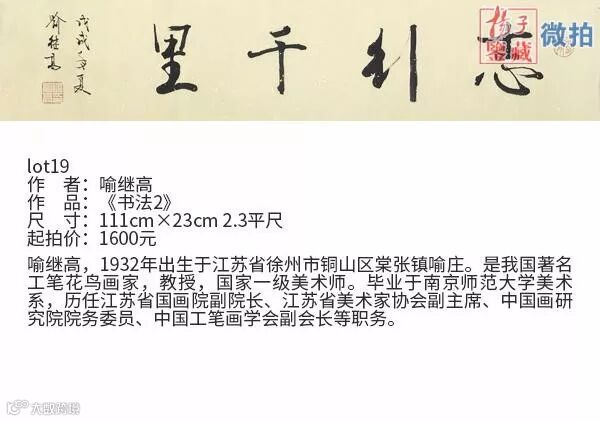 千里
喻继高
扬子鉴藏
微拍
lot19
作 者：喻继高
作 品：《书法2》
尺 寸：111cm×23cm 2.3平尺
起拍价：1600元
喻继高，1932年出生于江苏省徐州市铜山区棠张镇喻庄。是我国著名
工笔花鸟画家，教授，国家一级美术师。毕业于南京师范大学美术
系，历任江苏省国画院副院长、江苏省美术家协会副主席、中国画研
究院院务委员、中国工笔画学会副会长等职务。